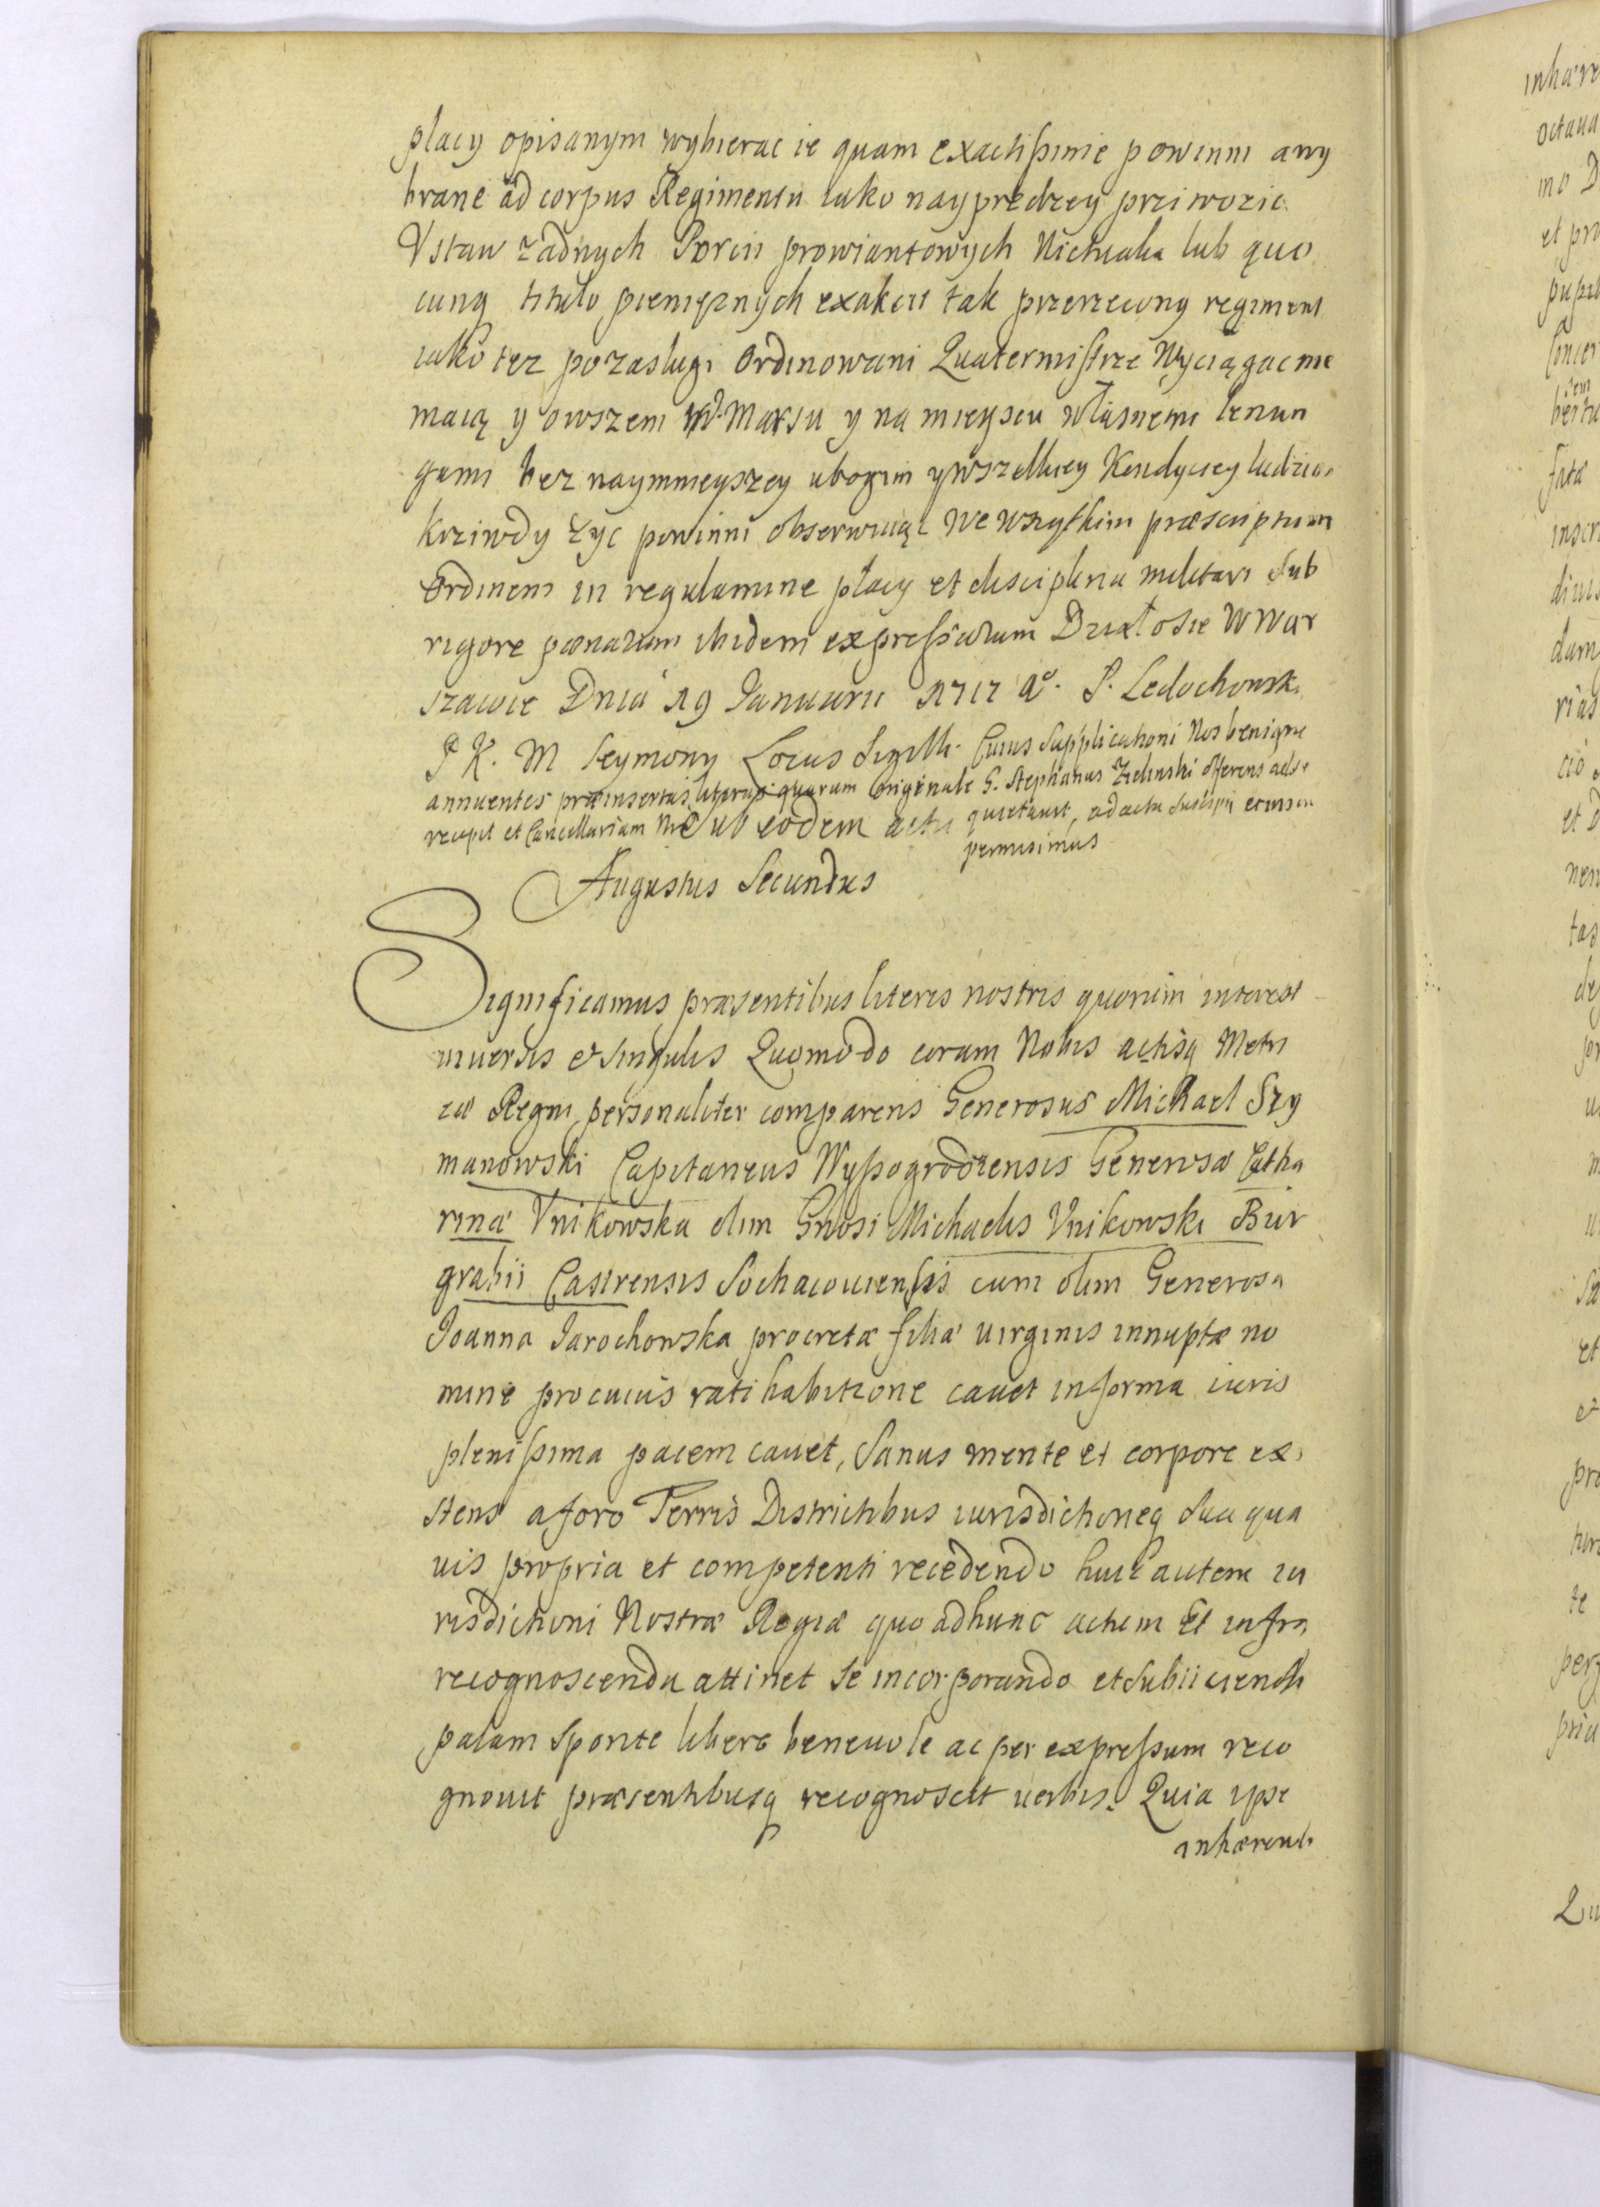 placy opisanym wybierac ie quam exactissime powinni a wy
brane ad corpus Regimentu iako nayprędzey przÿwozic
Vstaw żadnych Porcii prowiantowych Victualia lub quo
cunq titulo pieniężnych exakcii tak przerzeczony regiment
iako tez po zasługi Ordinowani Quatermistrze Wyciągac nie
maią y owszem w Marsu y na mieyscu własnemi lenun
gami bez naymnieyszey ubogim y wszelkiey Kondycyey ludziom
krziwdy życ powinni obserwuiąc we wszytkim præscriptum
Ordinem in regulamine płacy et disciplina militari sub
rigore pœnarum ibidem expressarum Działosie w War
szawie Dnia 19 Januarii 1717 Aº. S. Ledochowski
P K. M Seymony Locus Sigilli. Cuius Supplicationi Nos benigne
annuentes præinsertas literas quarum Originale G. Stephanus Zielinski offerens ad se
recepit et Cancellariam Nrã sub eodem actu quietavit, ad acta suscipi et inscri
permisimus
Augustus Secundus
Significamus præsentibus literis nostris quorum interest
uniuersis & singulis Quomodo coram Nobis actisq Metri
cæ Regni personaliter comparens Generosus Michael Szy
manowski Capitaneus Wyssogrodzensis Generosæ Catha
rinæ Vnikowska olim Gnosi Michaelis Vnikowski Bur
grabii Castrensis Sochaczouiensis cum olim Generosa
Joanna Jarochowska procreatæ filiæ uirginis innuptæ no
mine pro cuius rati habitione cauet in forma iuris
plenissima pacem cauet, Sanus mente et corpore exi
stens a foro Terris Districtibus iurisdictioneq sua qua
uis propria et competenti recedendo huic autem iu
risdictioni Nostræ Regiæ quo ad hunc actum Et infra
recognoscenda attinet se incorporando et subiiciendo
palam sponte libere beneuole ac per expressum reco
gnouit præsentibusq recognoscit uerbis. Quia ipse
inhærendo